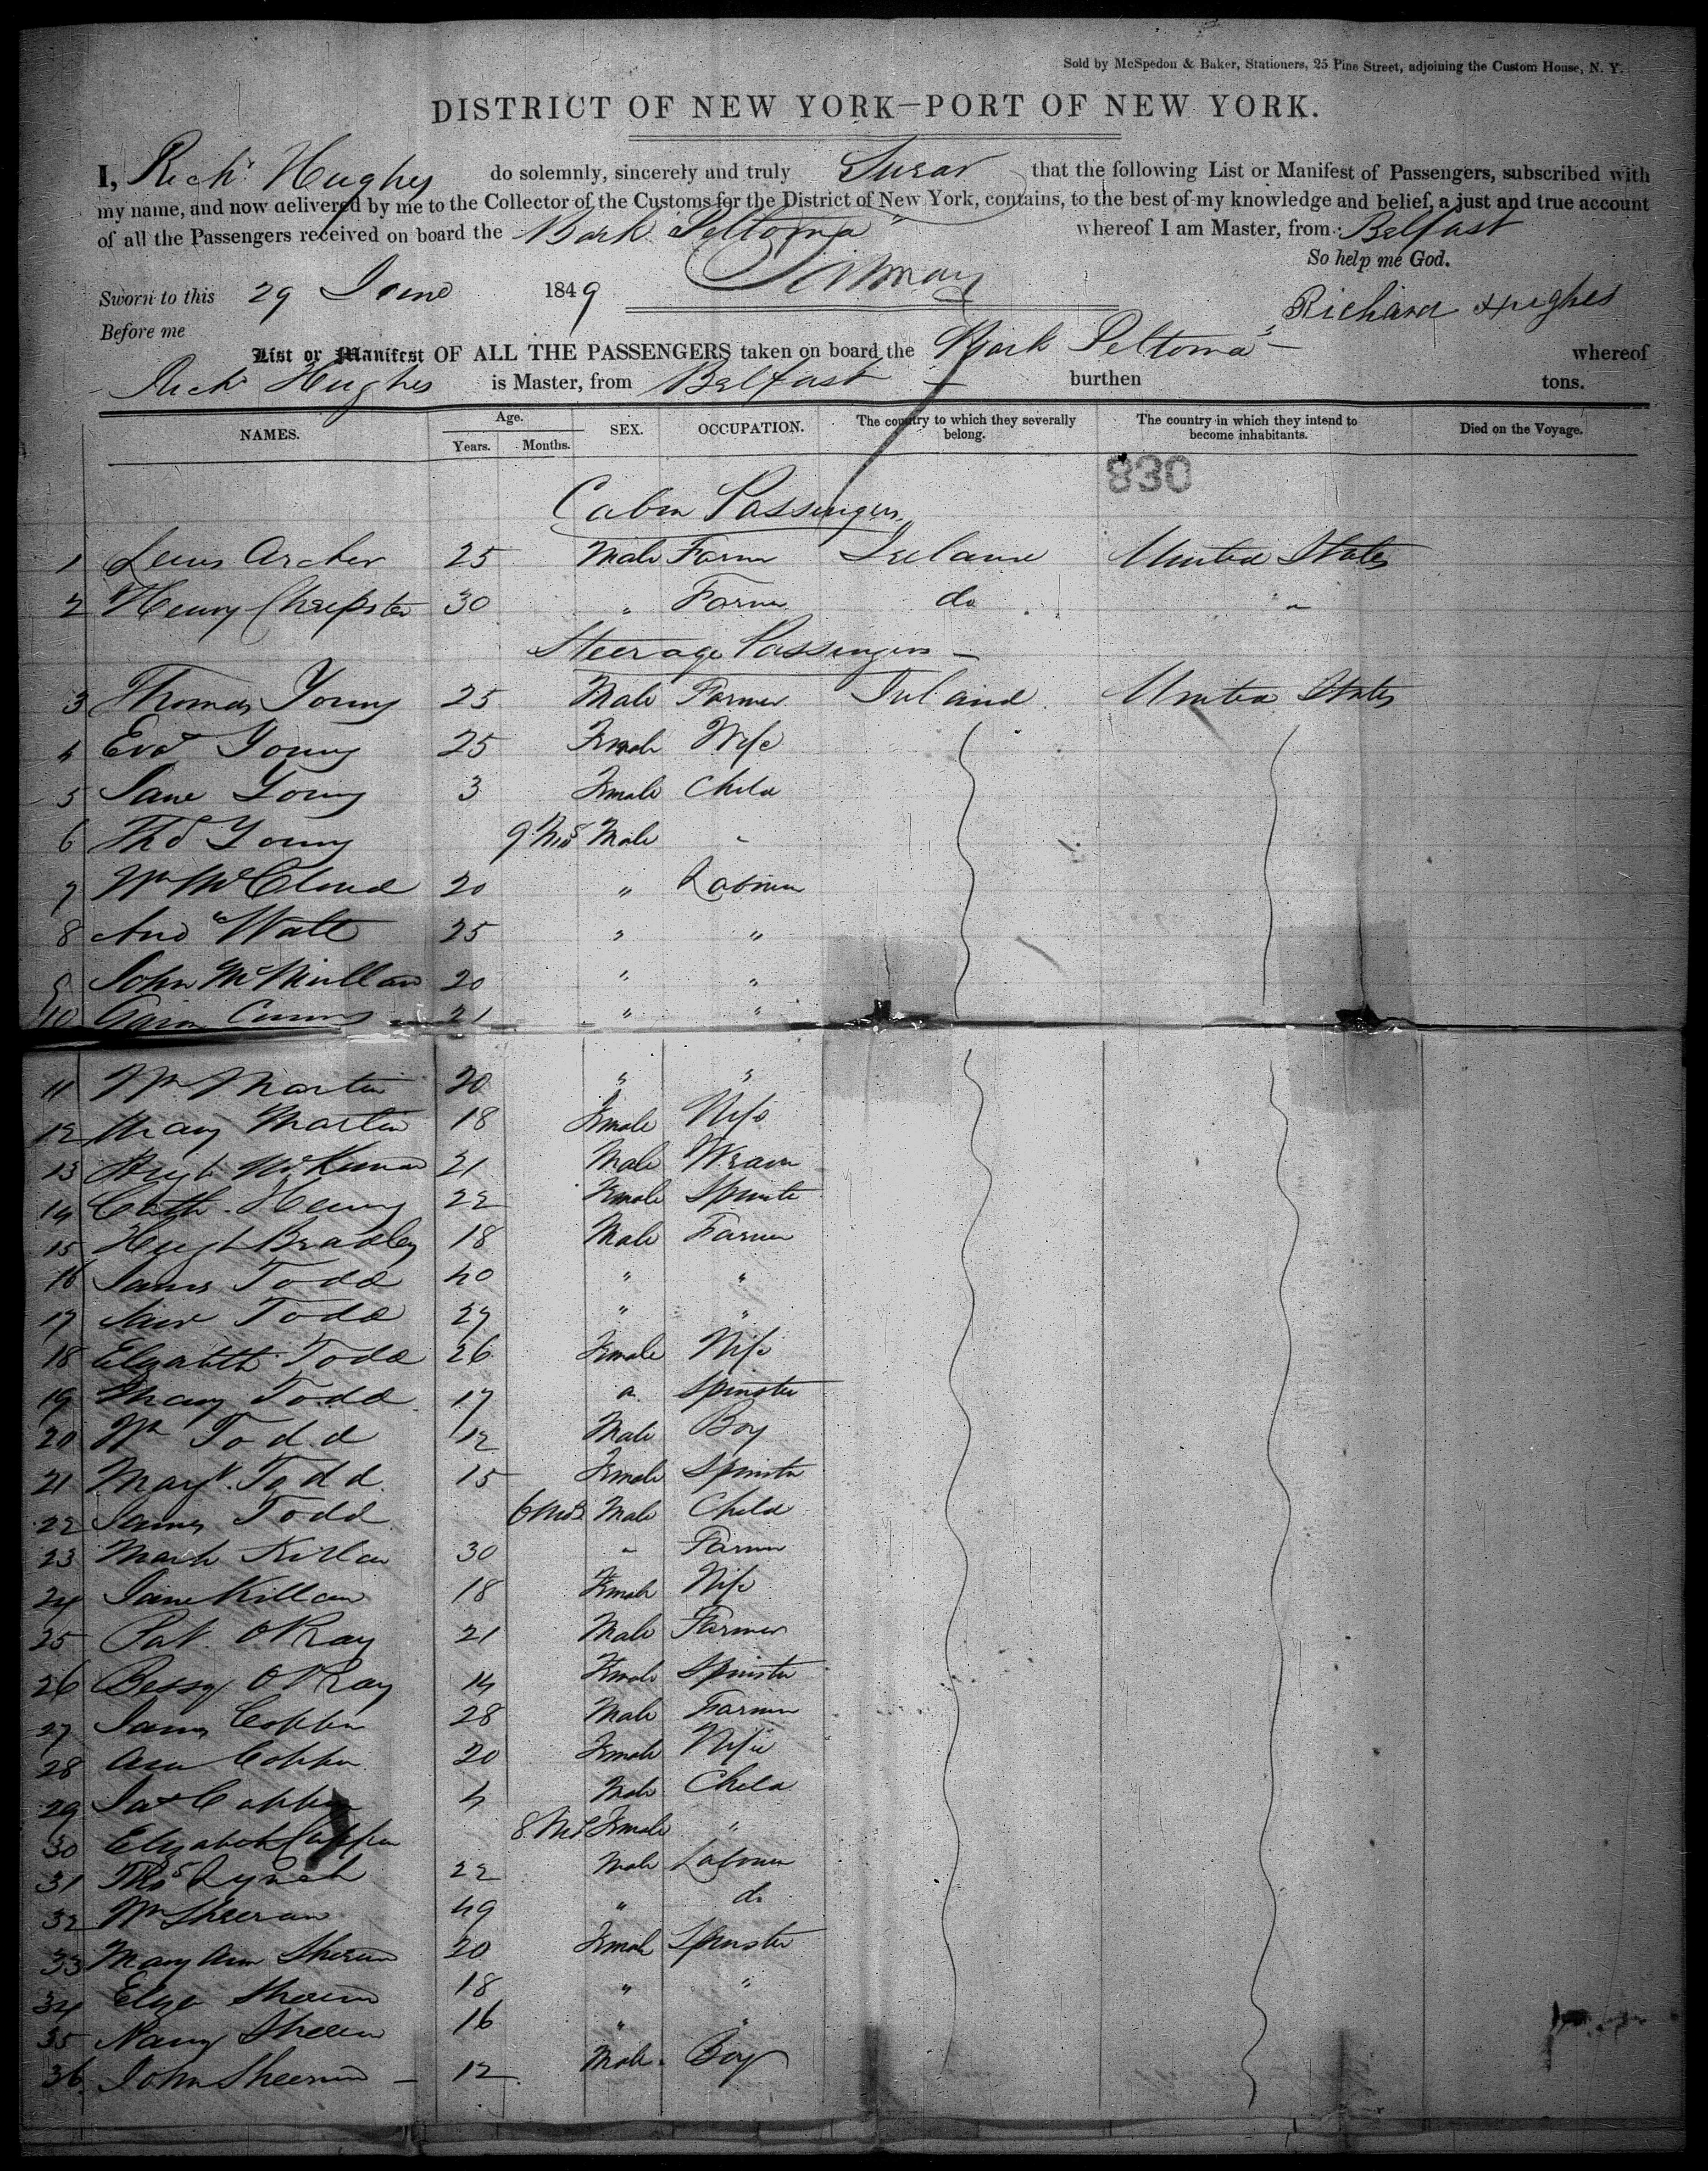 Sold by McSpedon & Baker, Stationers, 25 Pine Street, adjoining the Custom House, N. Y.
DISTRICT OF NEW YORK—PORT OF NEW YORK.
I, Richd Hughes do solemnly, sincerely and truly Swear that the following List or Manifest of Passengers, subscribed with
my name, and now delivered by me to the Collector of the Customs for the District of New York, contains, to the best of my knowledge and belief, a just and true account
of all the Passengers received on board the Bark Peltoma whereof I am Master, from Belfast
So help me God.
Sworn to this 29 June 1849
Richard Hughes
Before me
List or Manifest OF ALL THE PASSENGERS taken on board the Bark Peltoma whereof
Richd Hughes is Master, from Belfast burthen tons.
NAMES. Age. Years. Months. SEX. OCCUPATION. The country to which they severally belong. The country in which they intend to become inhabitants. Died on the Voyage.
830
Cabin Passengers
1 Lewis Archer 25 Male Farmer Ireland United States
2 Henry 30 " Farmer do "
Steerage Passengers —
3 Thomas Young 25 Male Farmer Ireland United States
4 Eva Young 25 Female Wife
5 Jane Young 3 Female Child
6 Thos Young 9 Mos Male "
7 Wm McCloud 20 " Labourer
8 And Watt 25 " "
9 John McMullan 20 " "
10 21 " "
11 Wm Martin 20 " "
12 Mary Martin 18 Female Wife
13 Hugh 21 Male Weaver
14 Cath. Henry 22 Female Spinster
15 Hugh Bradley 18 Male Farmer
16 James Todd 40 " "
17 Todd 27 " "
18 Elizabeth Todd 26 Female Wife
19 Mary Todd 17 " Spinster
20 Wm Todd 12 Male Boy
21 Margt Todd 15 Female Spinster
22 James Todd 6 Mos Male Child
23 Mark Killan 30 " Farmer
24 Jane Killan 18 Female Wife
25 Pat. O'Ray 21 Male Farmer
26 Bessy O'Ray 14 Female Spinster
27 James Coppin 28 Male Farmer
28 Ann Coppin 20 Female Wife
29 Jas Coppin 4 Male Child
30 Elizabeth Coppin 8 Ms Female "
31 Thos Lynch 22 Male Labourer
32 Wm Sheeran 49 " do
33 Mary Ann Sheeran 20 Female Spinster
34 Eliza Sheeran 18 " "
35 Nancy Sheeran 16 " "
36 John Sheeran — 12 Male Boy